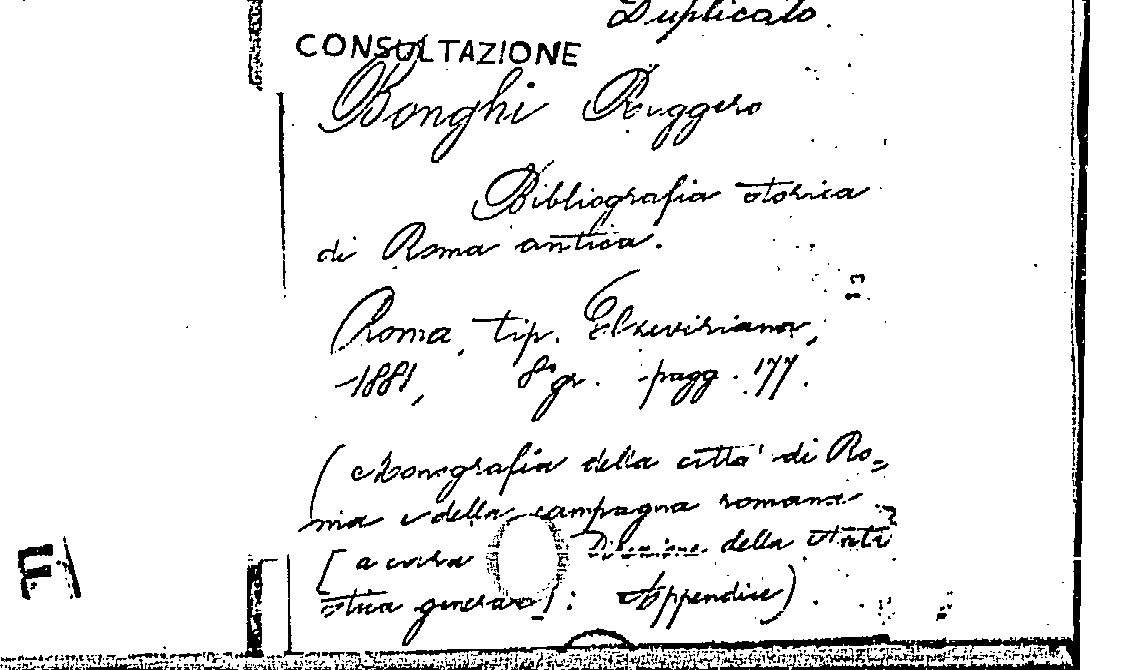 Duplicato.
CONSULTAZIONE
Bonghi Ruggero
Bibliografia storica
di Roma antica.
Roma, tip. Elzeviriana,
1881, 8° gr. pagg. 177.
(Monografia della città di Ro=
ma e della campagna romana
[a cura Direzione della Stati
stica generale]: Appendice).